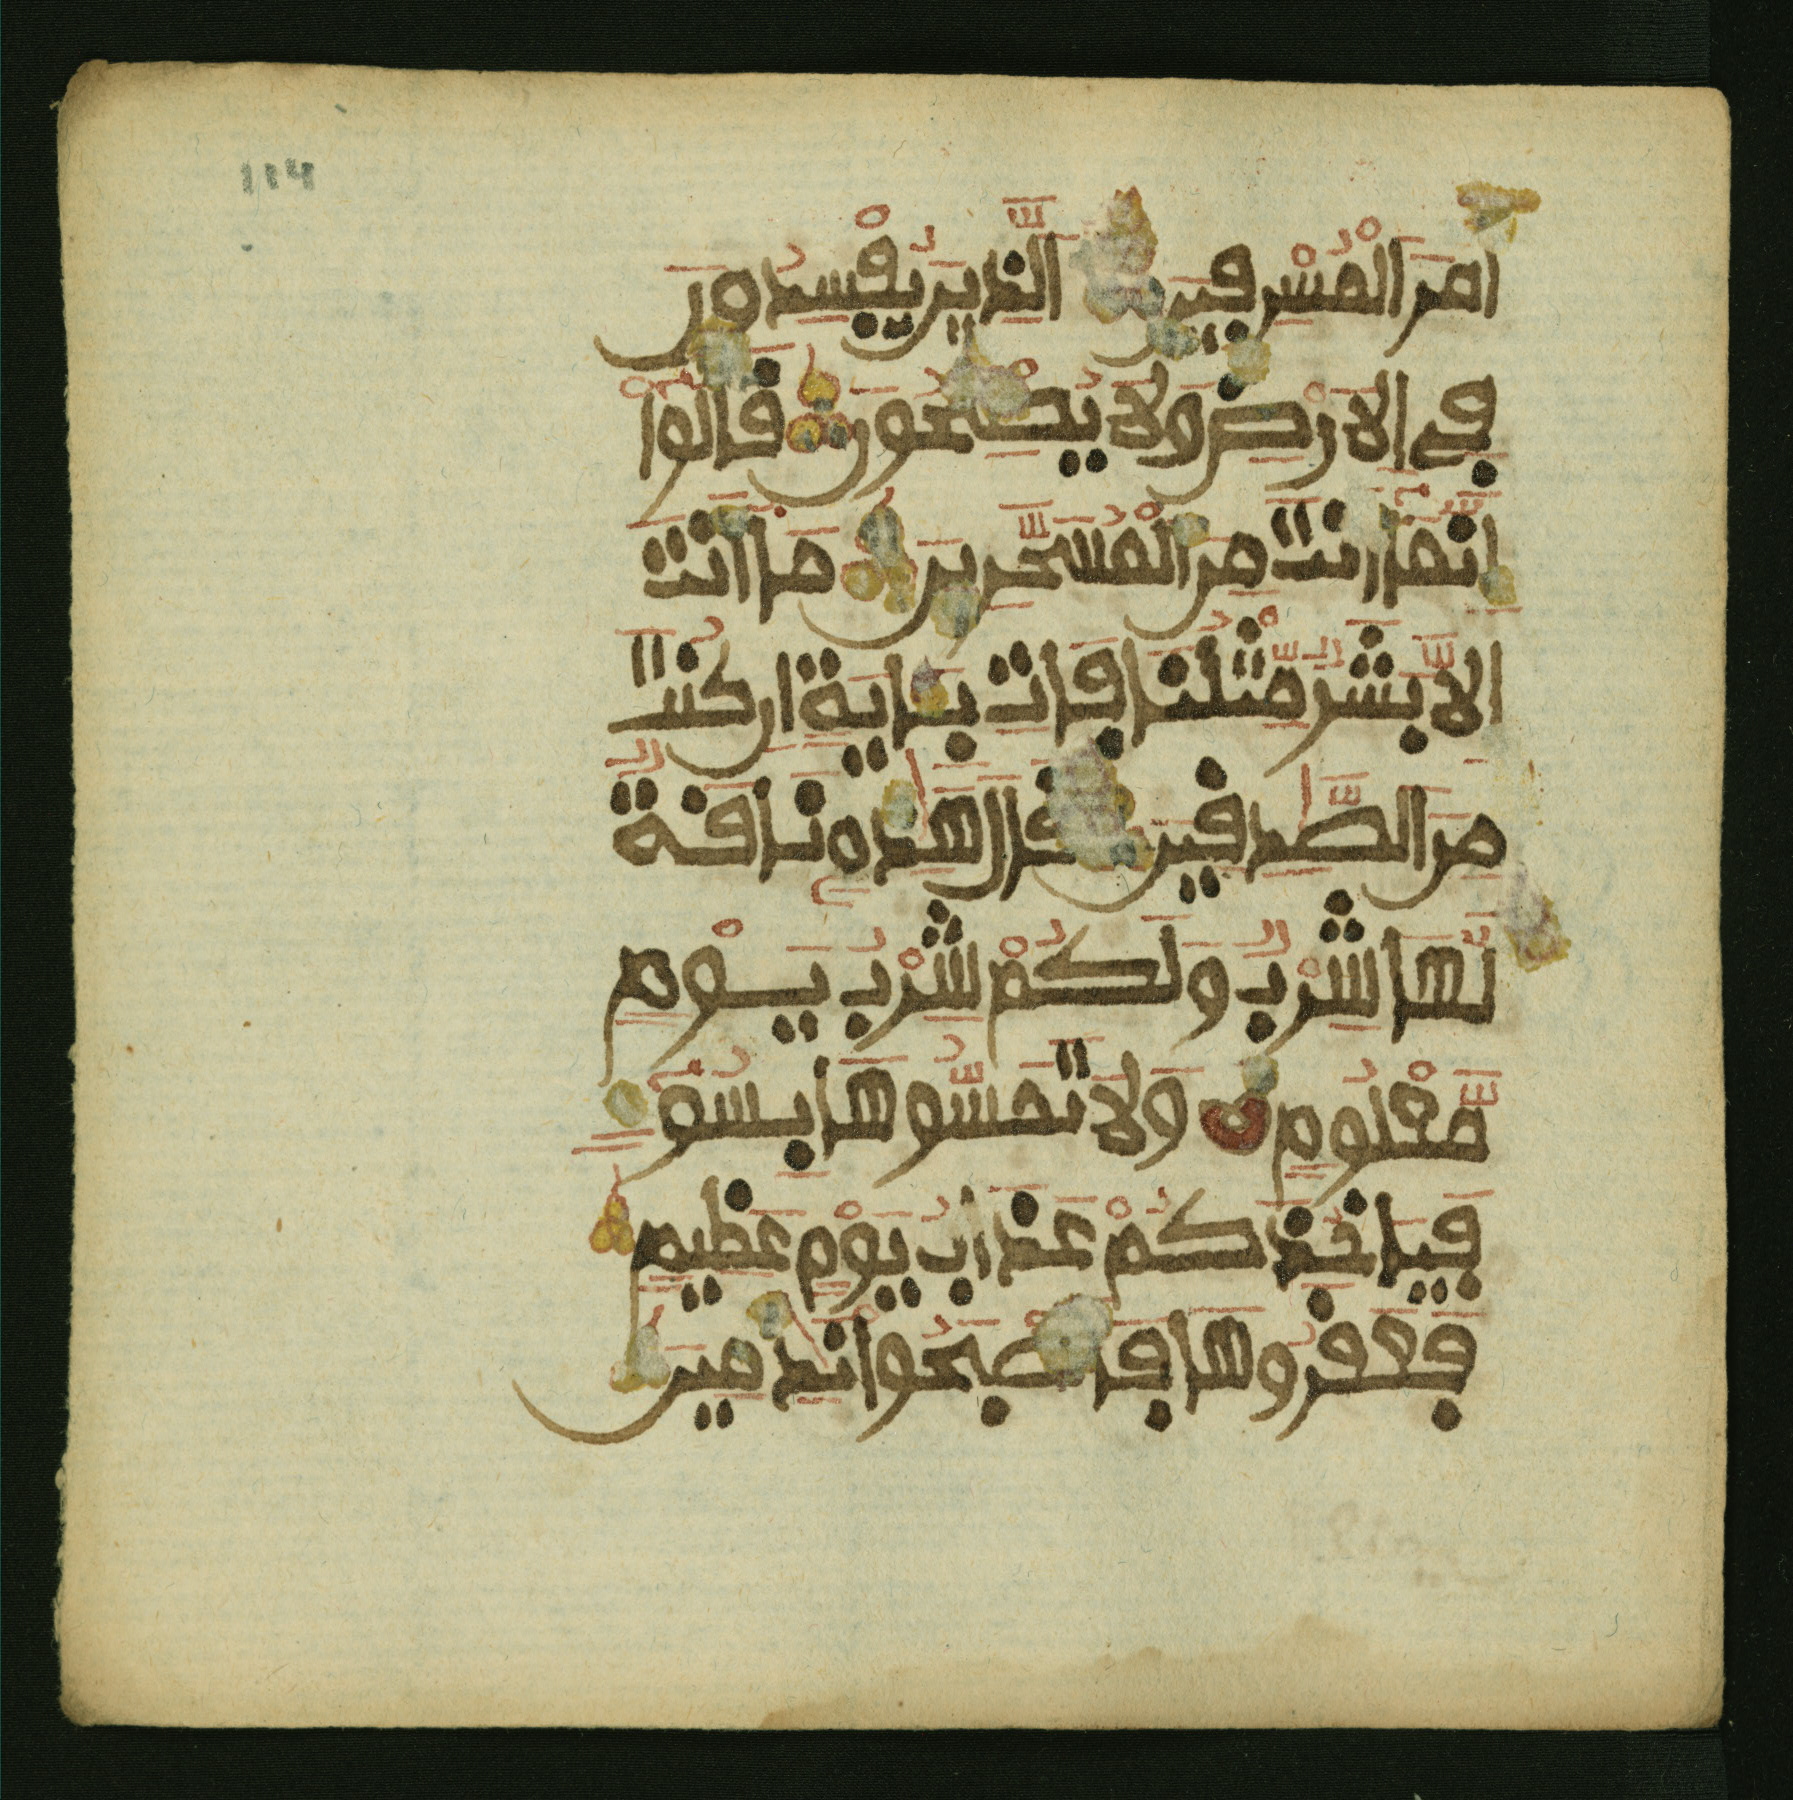 114
امر المسرفين الذين يفسدون
في الارض ولا يصلحون قالوا
انما انت من المسحرين ما انت
الا بشر مثلنا فات بـاية ان كنت
من الصدقين قال هذه ناقة
لها شرب ولكم شرب يوم
معلوم ولا تمسوها بسو
فياخذكم عذاب يوم عظيم
فعقروها فاصبحوا ندمين